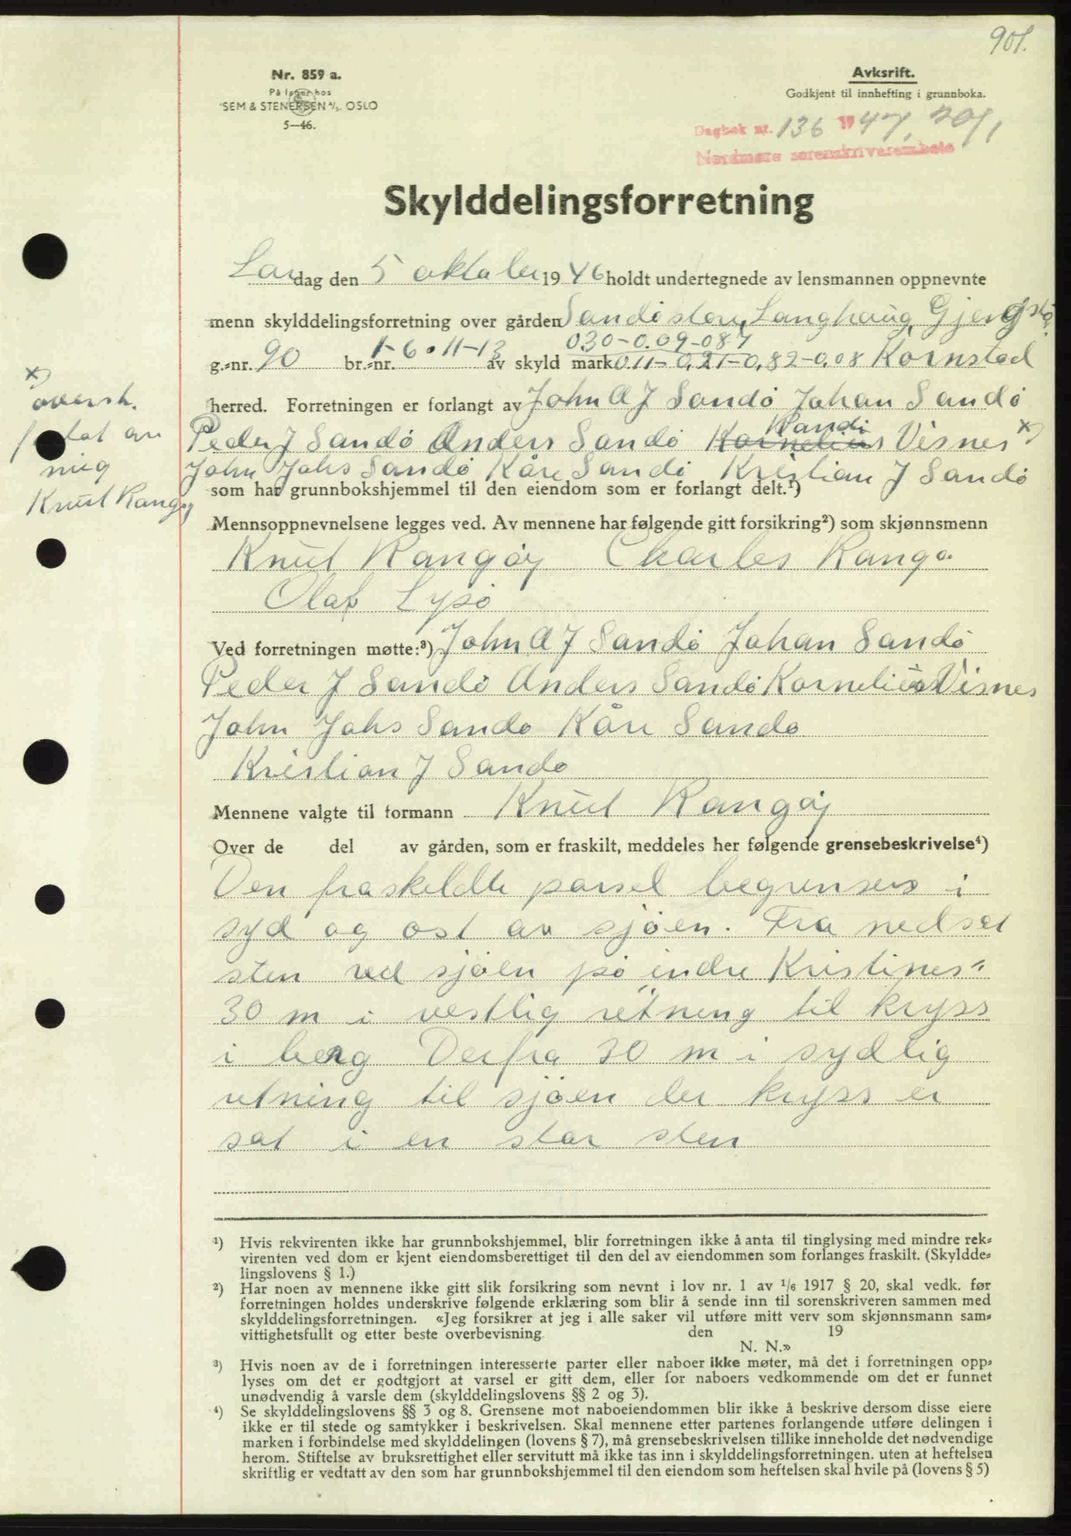 901.
Nr. 859 a.
På lager hos
SEM & STENERSEN A/S. OSLO
5—46.
Avksrift.
Godkjent til innhefting i grunnboka.
Dagbok nr. 136 1947, 20/1
Nordmøre sorenskriverembete
Skylddelingsforretning
Lørdag den 5 oktober 1946 holdt undertegnede av lensmannen oppnevnte
menn skylddelingsforretning over gården Sandö store, Langhaug,
030-0.09-087
g.-nr. 90 br.-nr. 1-6-11-13 av skyld mark 0.11-0,21-0,82-0.08 Kornstad
herred. Forretningen er forlangt av John A J Sandö Johan Sandö
Randi
Peder J Sandö Anders Sandö Kornelius Visnes x)
John Johs Sandö Kåre Sandö Kristian J Sandö
som har grunnbokshjemmel til den eiendom som er forlangt delt.¹)
x)
oversk.
av
mig
Knut Rangöy
Mennsoppnevnelsene legges ved. Av mennene har følgende gitt forsikring²) som skjønnsmenn
Knut Rangöy Charles Rangö
Olaf Lysö
Ved forretningen møtte:³) John A J Sandö Johan Sandö
Peder J Sandö Anders Sandö Kornelius Visnes
John Johs Sandö Kåre Sandö
Kristian J Sandö
Mennene valgte til formann Knut Rangöy
Over de del av gården, som er fraskilt, meddeles her følgende grensebeskrivelse⁴)
Den fraskildte parsel begrenses i
syd og öst av sjöen. Fra nedsat
sten ved sjöen på indre Kristines"
30 m i vestlig retning til kryss
i berg Derfra 30 m i sydlig
retning til sjöen der kryss er
sat i en stor sten
¹) Hvis rekvirenten ikke har grunnbokshjemmel, blir forretningen ikke å anta til tinglysing med mindre rek-
virenten ved dom er kjent eiendomsberettiget til den del av eiendommen som forlanges fraskilt. (Skyldde-
lingslovens § 1.)
²) Har noen av mennene ikke gitt slik forsikring som nevnt i lov nr. 1 av 1/6 1917 § 20, skal vedk. før
forretningen holdes underskrive følgende erklæring som blir å sende inn til sorenskriveren sammen med
skylddelingsforretningen. «Jeg forsikrer at jeg i alle saker vil utføre mitt verv som skjønnsmann sam-
vittighetsfullt og etter beste overbevisning. den 19
N. N.»
³) Hvis noen av de i forretningen interesserte parter eller naboer ikke møter, må det i forretningen opp-
lyses om det er godtgjort at varsel er gitt dem, eller for naboers vedkommende om det er funnet
unødvendig å varsle dem (skylddelingslovens §§ 2 og 3).
⁴) Se skylddelingslovens §§ 3 og 8. Grensene mot naboeiendommen blir ikke å beskrive dersom disse eiere
ikke er til stede og samtykker i beskrivelsen. Skal mennene etter partenes forlangende utføre delingen i
marken i forbindelse med skylddelingen (lovens § 7), må grensebeskrivelsen tillike inneholde det nødvendige
herom. Stiftelse av bruksrettighet eller servitutt må ikke tas inn i skylddelingsforretningen. uten at heftelsen
skriftlig er vedtatt av den som har grunnbokshjemmel til den eiendom som heftelsen skal hvile på (lovens § 5)